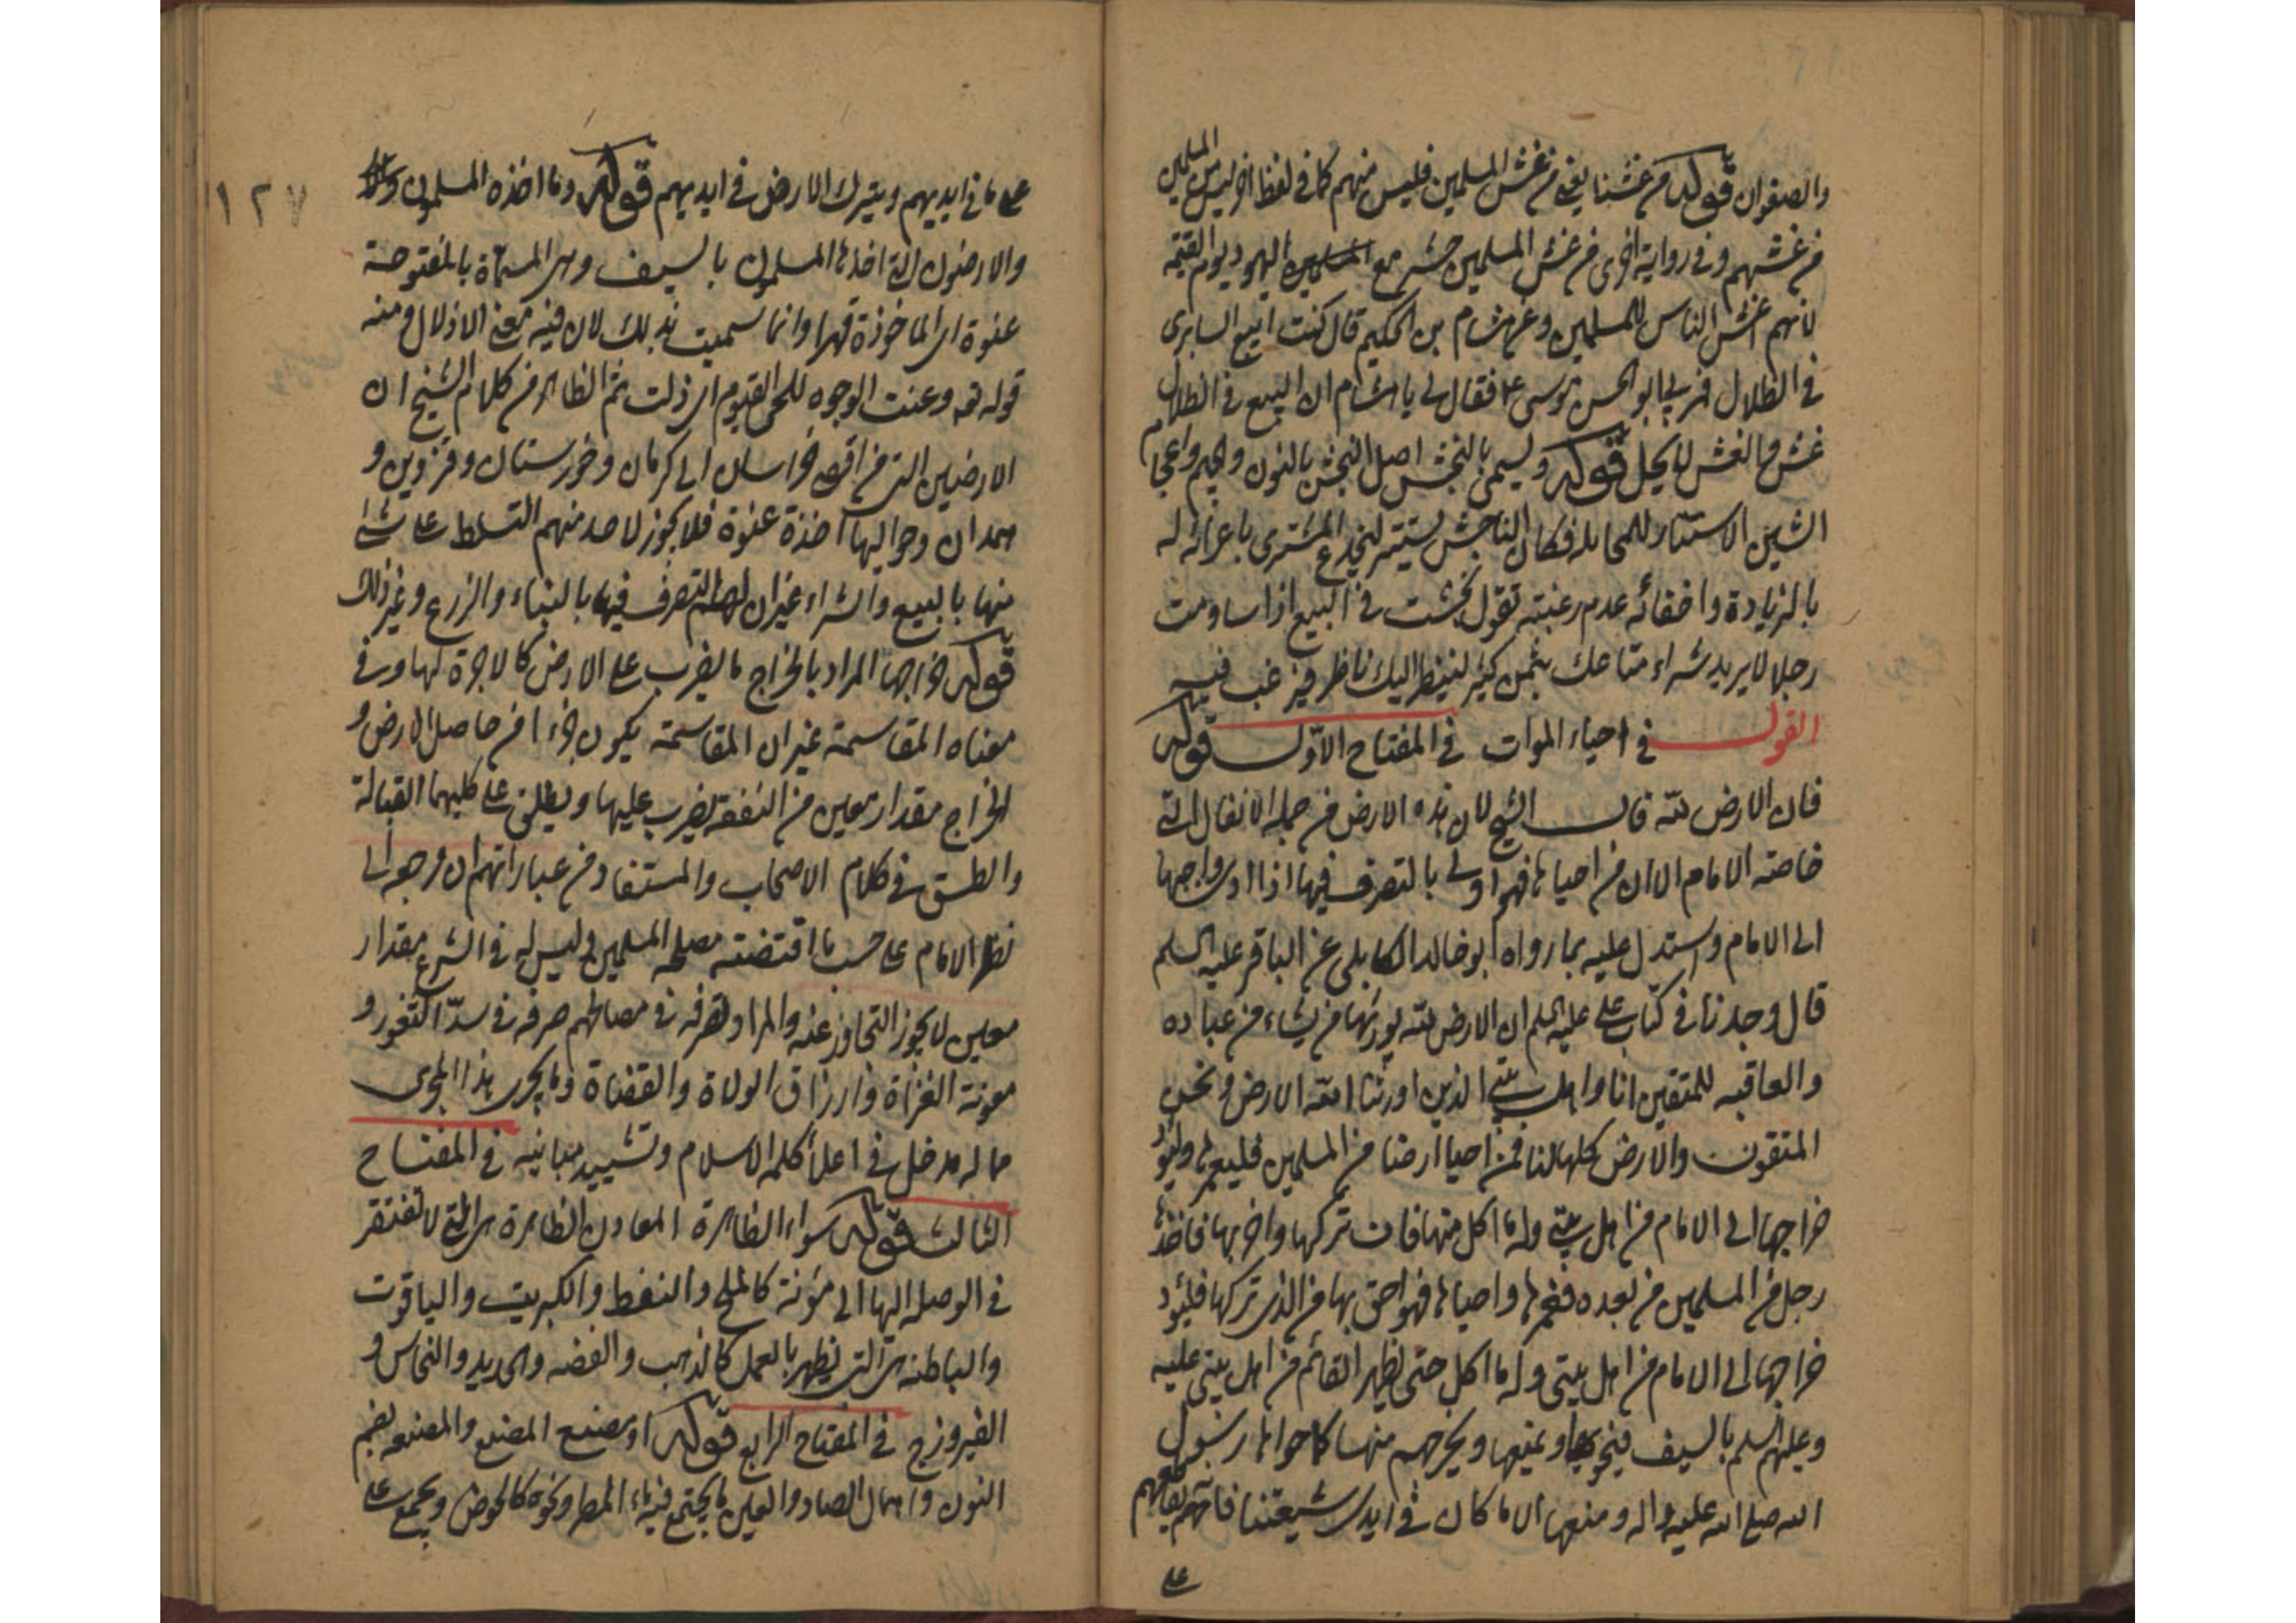 والصفوان قوله من غشنا يعني من غش المسلمين فليس منهم كما في لفظ اخر ليس من المسلمين
من غشهم وفي رواية اخرى من غش المسلمين حشر مع اليهود يوم القيمة
لانهم اغش الناس للمسلمين وعن هشام بن الحكيم قال كنت ابيع السابرى
في الظلال فمر بي ابو الحسن موسى ع فقال لي يا هشام ان البيع في الظلال
غش والغش لا يحل قوله ويسمى بالنجش اصل النجش بالنون والجيم واعجام
الشين الاستتار للمخايله فكان الناجش يستتر ليخدع المشترى باغرائه له
بالزيادة واخفائه عدم رغبته تقول نجشت في البيع اذا ساومت
رجلا لا يريد شراء متاعك بثمن كثير لينظر اليك ناظر فيرغب فيه
القول في احياء الموات في المفتاح الاول قوله
فان الارض لله قال الشيخ لان هذه الارض من جملة الانفال التي
خاصته الامام الا ان من احياها فهو اولى بالتصرف فيها اذا ادى واجبها
الى الامام واستدل عليه بما رواه ابو خالد الكابلى عن الباقر عليه السلم
قال وجدنا في كتاب على عليه السلم ان الارض لله يورثها من يشاء من عباده
والعاقبه للمتقين انا واهل بيتى الذين اورثنا الله الارض ونحن
المتقون والارض كلها لنا فمن احيا ارضا من المسلمين فليعمرها وليؤد
خراجها الى الامام من اهل بيتى وله ما اكل منها فان تركها واخربها فاخذها
رجل من المسلمين من بعده فعمرها واحياها فهو احق بها من الذى تركها فليؤد
خراجها الى الامام من اهل بيتى وله ما اكل حتى يظهر القائم من اهل بيتى عليه
وعليهم السلم بالسيف فيحويها ويمنعها ويخرجهم منها كما حواها رسول
الله صلى الله عليه واله ومنعها الا ما كان في ايدى شيعتنا فانه يقاطعهم
على
١٢٧
على ما في ايديهم ويترك الارض في ايديهم قوله وما اخذه المسلمون
والارضون التي اخذها المسلمون بالسيف وهى المسماة بالمفتوحة
عنوة اى الماخوذة قهرا وانما سميت بذلك لان فيه معنى الاذلال ومنه
قوله تعه وعنت الوجوه للحى القيوم اى ذلت ثم الظاهر من كلام الشيخ ان
الارضين التي من اقصى خراسان الى كرمان وخوزستان وقزوين و
همدان وحواليها اخذة عنوة فلا يجوز لاحد منهم التسلط على شئ
منها بالبيع والشراء غير ان لهم التصرف فيها بالبناء والزرع وغير ذلك
قوله خراجها المراد بالخراج ما يضرب على الارض كالاجرة لها وفى
معناه المقاسمة غير ان المقاسمة يكون جزءا من حاصل الارض و
الخراج مقدار معين من النفقه يضرب عليها ويطلق على كليهما القبالة
والطسق في كلام الاصحاب والمستفاد من عباراتهم ان مرجعه الى
نظر الامام على حسب ما اقتضته مصلحة المسلمين وليس له في الشرع مقدار
معين لا يجوز التجاوز عنه والمراد بصرفه في مصالحهم صرفه في سد الثغور و
معونة الغزاة وارزاق الولاة والقضاة وما يجرى هذا المجرى
مما له مدخل في اعلا كلمه الاسلام وتشييد مبانيه في المفتاح
الثالث قوله سواء الظاهرة المعادن الظاهرة هى التي لا تفتقر
في الوصله اليها الى مؤنة كالملح والنفط والكبريت والياقوت
والباطنه هى التي يظهر بالعمل كالذهب والفضه والحديد والنحاس و
الفيروزج في المفتاح الرابع قوله او مصنع المصنع والمصنعه بضم
النون واهمال الصاد والعين ما يجتمع فيه ماء المطر ونحوه كالحوض ويجمع على